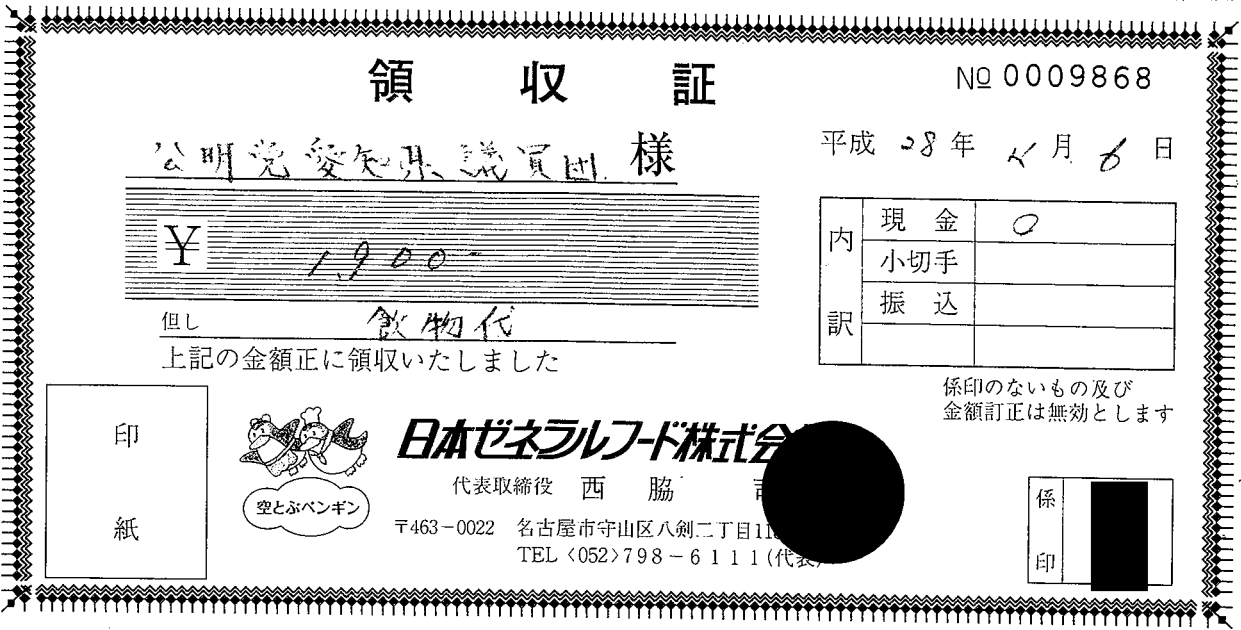 領収証
№ 0009868
公明党愛知県議員団 様
平成 28年 月 6 日
¥ 1,900-
但し 飲物代
上記の金額正に領収いたしました
内訳
現金 〇
小切手
振込
係印のないもの及び
金額訂正は無効とします
印紙
空とぶペンギン
日本ゼネラルフード株式会
代表取締役 西脇
〒463-0022 名古屋市守山区八剣二丁目11
TEL〈052〉798-6111(代表)
係印